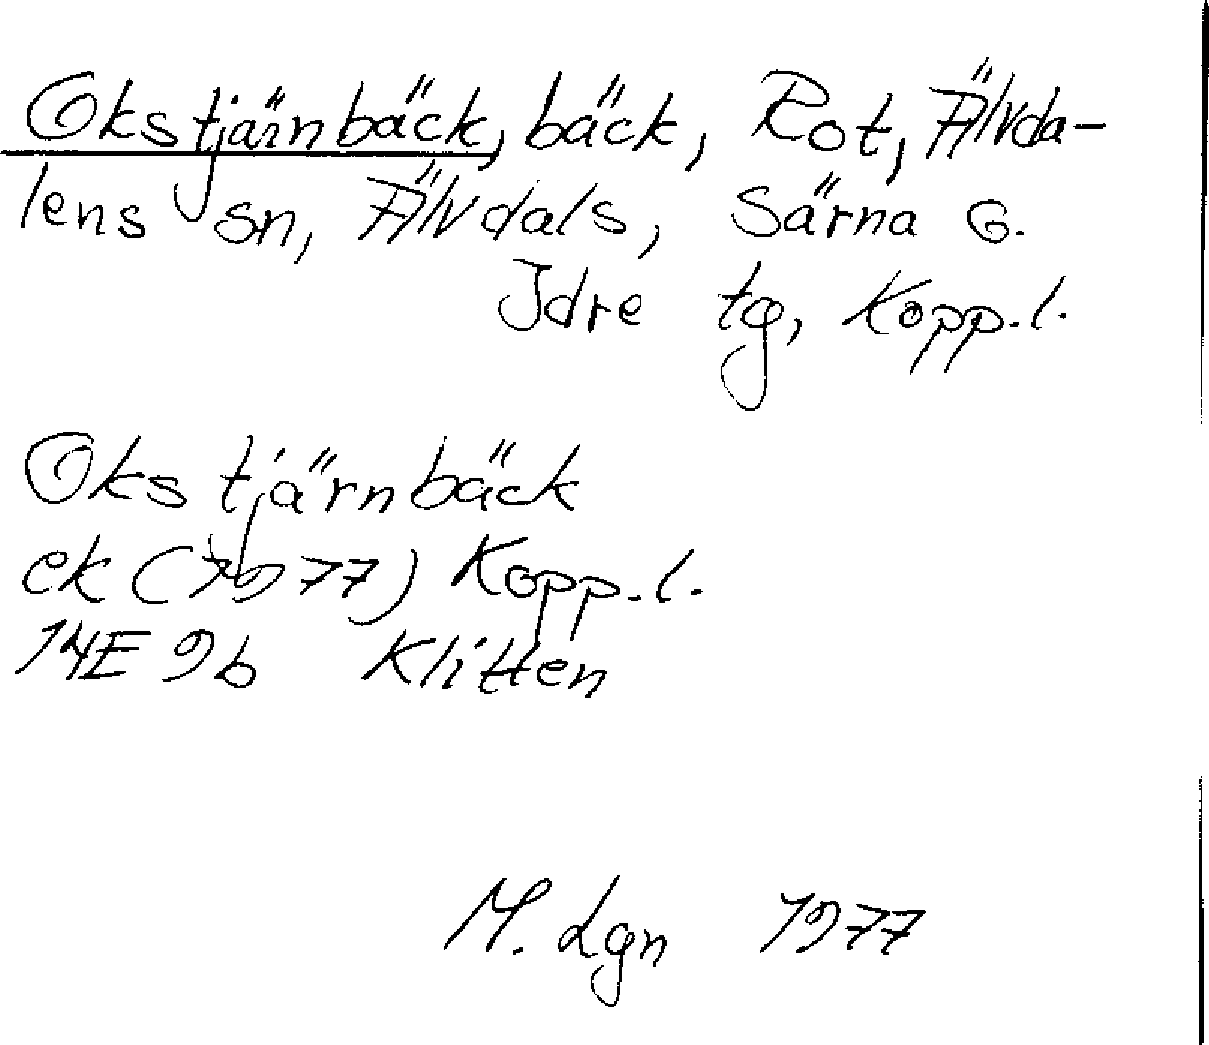 Okstjärnbäck, bäck, Rot, Älvda-
lens sn, Älvdals, Särna o.
Idre tg, Kopp.l.
Okstjärnbäck
ek (1977) Kopp.l.
14E 9b Klitten
M. Lgn 1977